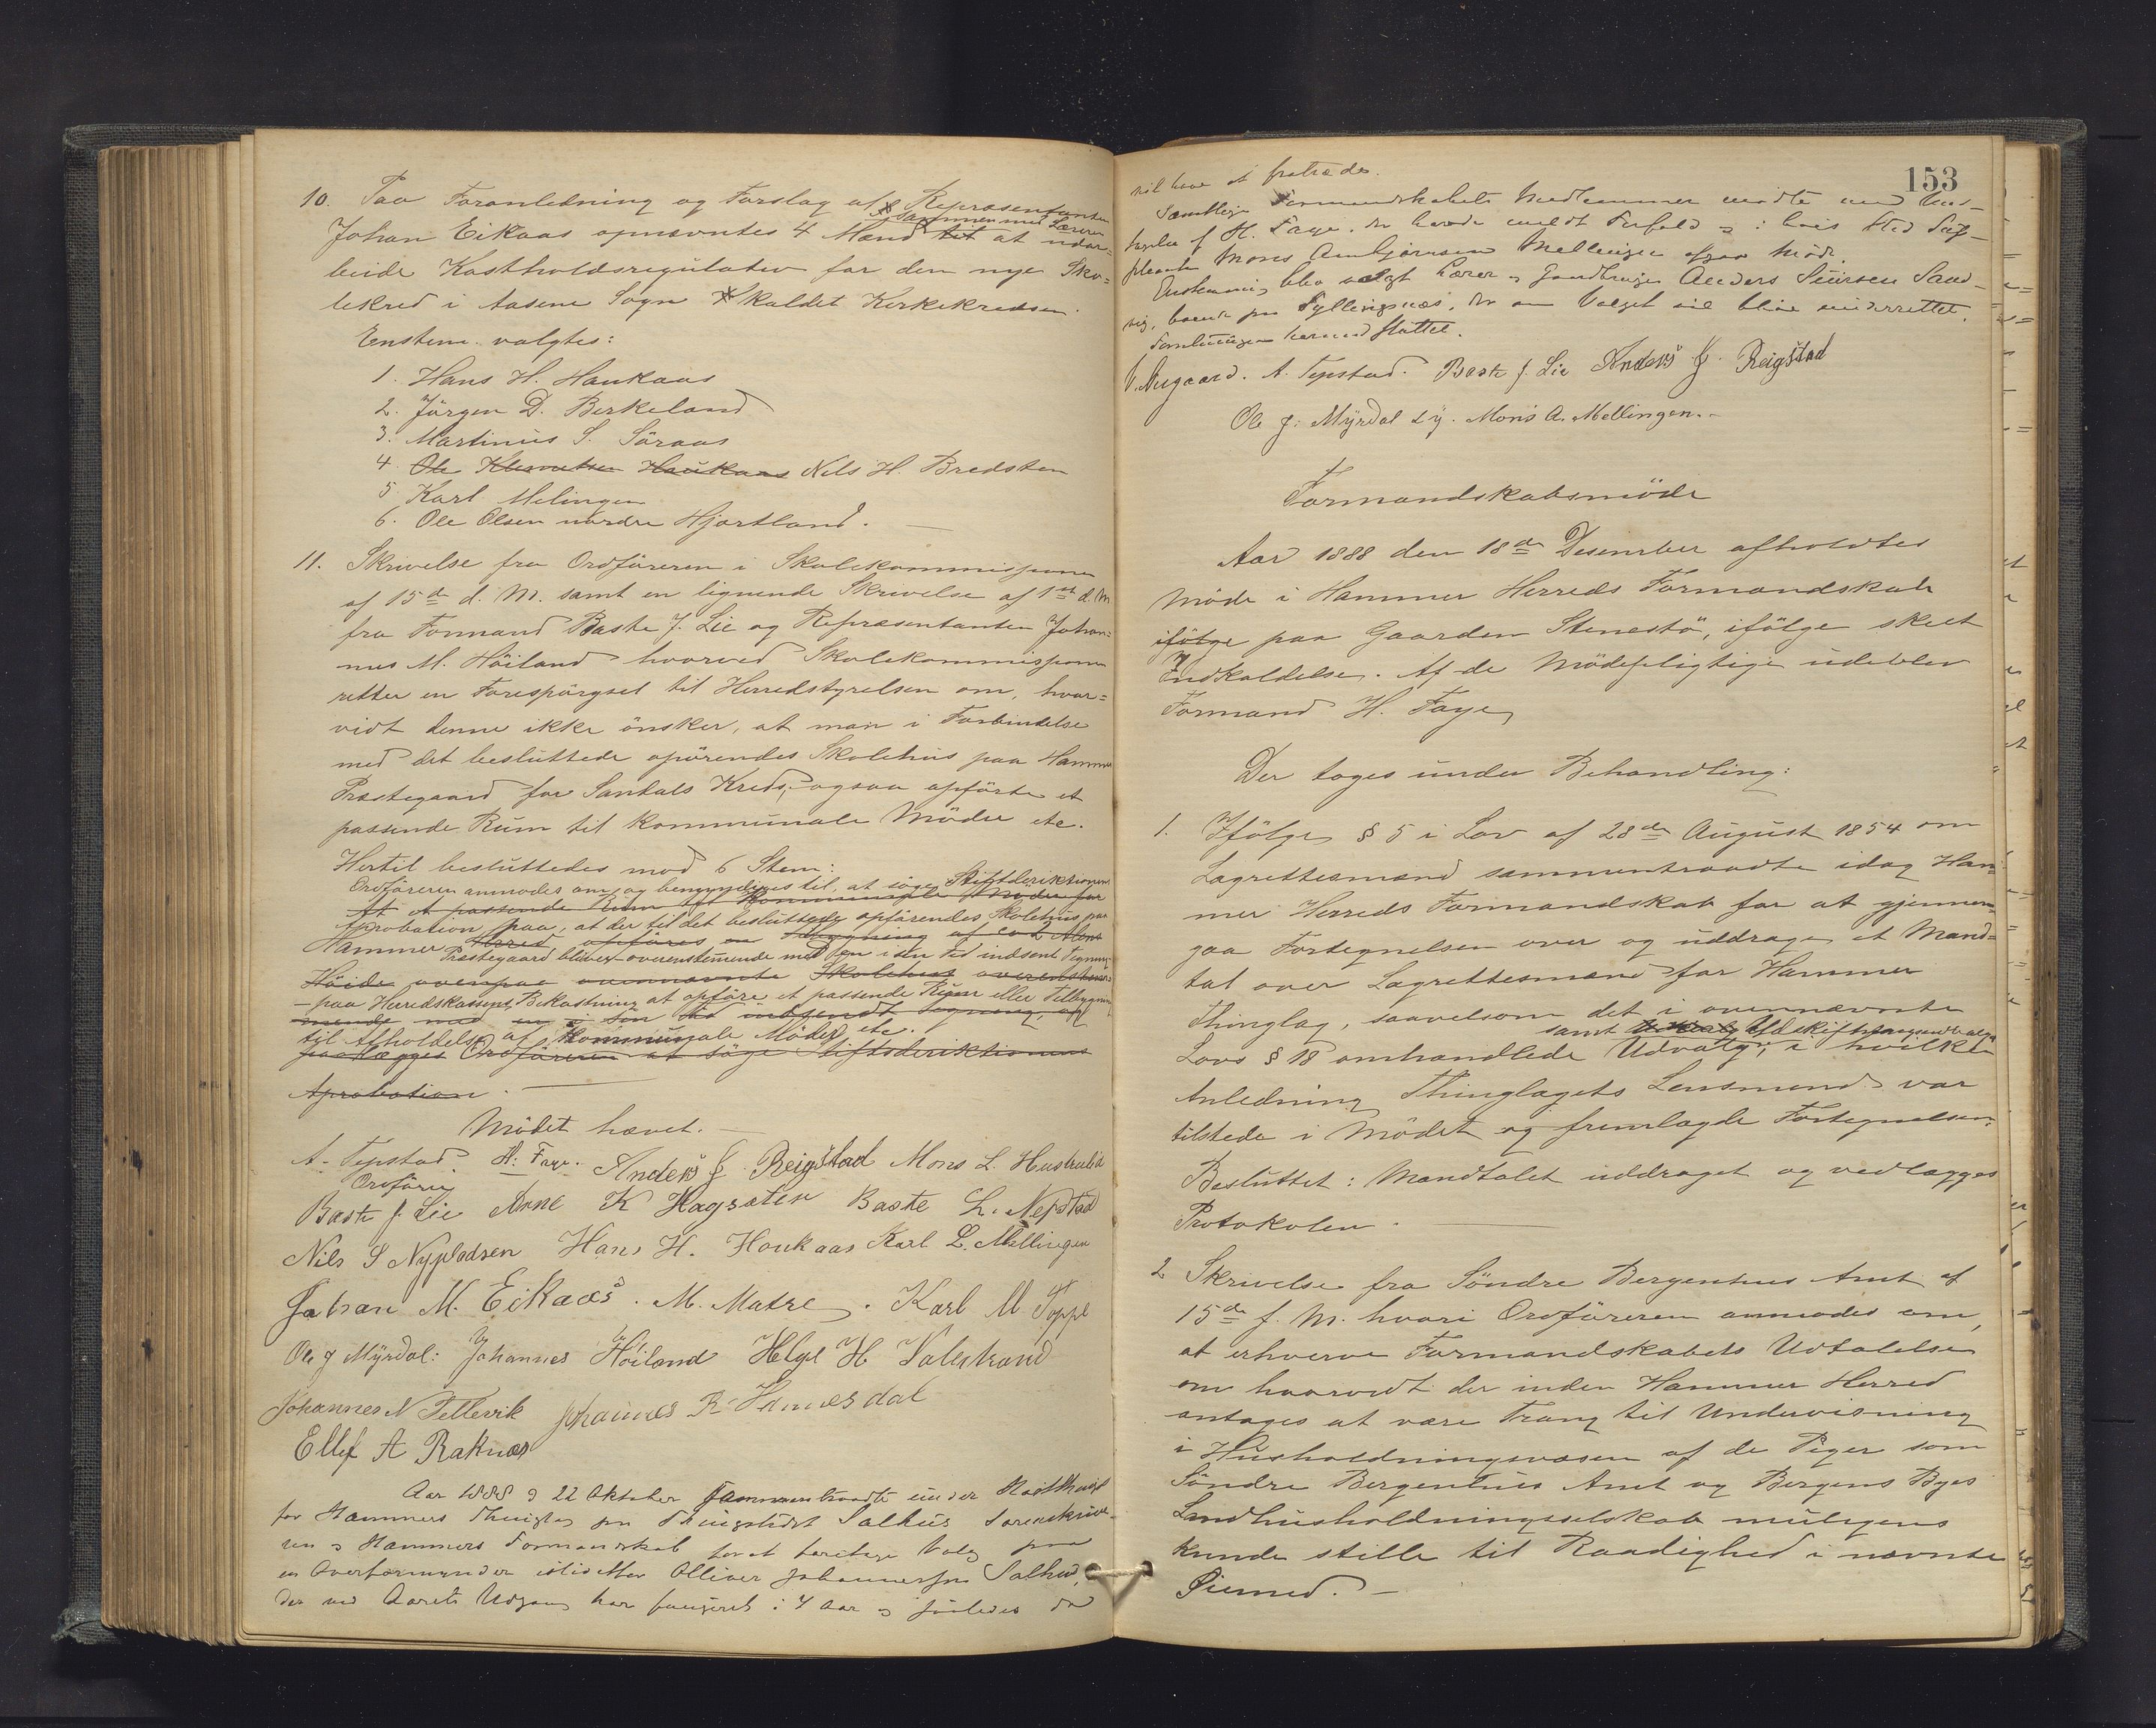 10. Paa Foranledning og Forslag af Repræsentanten
Johan Eikaas opnævntes 4 Mænd til at udar=
sammen med Læreren
beide Kostholdsregulativ for den nye Sko=
lekred i Aasene Sogn kaldet Kirkekredsen.
Enstem. valgtes:
1. Hans H. Haukaas
2. Jörgen D. Birkeland
3. Martinus S. Söraas
4. Ole Haukaas Nils H. Bredsten
5 Karl Melingen
6. Ole Olsen nordre Hjortland.
11. Skrivelse fra Ordföreren i Skolekommissjonen
af 15de d. M. samt en lignende Skrivelse af 1st d. M
fra Formand Baste J. Lie og Repræsentanten Johan=
nes M. Höiland hvorved Skolekommissjonen
retter en Forespörgsel til Herredstyrelsen om, hvor=
vidt denne ikke önsker, at man i Forbindelse
med det besluttede opförendes Skolehus paa Hammer
Præstegaard for Santals Kreds, ogsaa opförte et
passende Rum til kommunale Möder etc.
Hertil besluttedes mod 6 Stem:
Ordföreren anmodes om og bemyndiges til, at söge Stiftsdirektionens
At et passende Rum til Kommunale Möder for
Aprobation paa, at der til det besluttede opförendes Skolehus paa
Hammer Herred opföres en Tilbygning af Alens
Præstegaard bliver overenstemende med den i sin tid indsent Tegning
Höide ovenpaa ovennævnte Skolehus overenstem
- paa Herredskassens Bekostning at opföre et passende Rum eller Tilbygning
mende med en i sin tid indsendt Tegning, og
til Afholdelse af Kommunale Möder etc.
paalægges Ordföreren at söge Stiftsderiktionens
Aprobation.
Mödet hævet.
A. Tepstad. H. Faye. Anders J. Reigstad Mons L. Hustveit
Ordförer
Baste J. Lie Arne K Hagesæter Baste L. Nepstad
Nils S Nypladsen Hans H. Houkaas Karl L. Mellingen
Johan M. Eikaas. M. Matre. Karl M Toppe
Ole J Myrdal: Johannes Höiland Helge H Valestrand
Johannes N Tellevik Johannes R Hannesdal
Ellef A Raknes
Aar 1888 d 22 Oktober sammentraadte under
for Hammers Thinglag paa Thingstedet Salhus Sorenskrive-
ren og Hammers Formandskab for at foretage Valg paa
en Overformynder istedetfor Olliver Johannessen Salhus,
der ved Aarets Udgang har fungeret i 4 Aar og saaledes da
153
vil have at fratræde.
Samtlige Formandskabets Medlemmer mödte med Und-
tagelse af H. Faye, der havde meldt Forfald og i hvis Sted Sup-
pleanten Mons Ambjörnsen Mellingen afgav Möde.
Enstemmig blev valgt Lærer og Gaardbruger Anders Siursen Sand-
vig, boende paa Fyllingsnæs, der om Valget vil blive underrettet.
Forretningen hermed sluttet.
V. Nugaard. A. Tepstad. Baste J. Lie Anders J. Reigstad
Ole J. Myrdal Mons A. Mellingen.
Formandskabsmöde
Aar 1888 den 18de Desember afholdtes
Möde i Hammer Herreds Formandskab
ifölge paa Gaarden Stenestö, ifölge skeet
Indkaldelse. Af de Mödepligtige udeblev
Formand H. Faye
Der toges under Behandling:
1. Ifölge § 5 i Lov af 28de August 1854 om
Lagrettesmænd sammentraadte idag Ham=
mer Herreds Formandskab for at gjennem=
gaa Fortegnelsen over og uddrage et Mand=
tal over Lagrettesmænd for Hammer
Thinglag, saavelsom det i overnævnte
samt Udskiftningsudvalg
Lovs § 18 omhandlede Udvalg, i hvilken
Anledning Thinglagets Lensmand var
tilstede i Mödet og fremlagde Fortegnelsen.
Besluttet: Mandtalet uddraget og vedlægges
Protokolen.
2 Skrivelse fra Söndre Bergenhus Amt af
15de f. M. hvori Ordföreren anmodes om,
at erhverve Formandskabets Udtalelse
om hvorvidt der inden Hammer Herred
antages at være Trang til Undervisning
i Husholdningsvæsen af de Piger som
Söndre Bergenhus Amt og Bergens Byes
Landhusholdningsselskab muligens
kunde stille til Raadighed i nævnte
Öiemed.